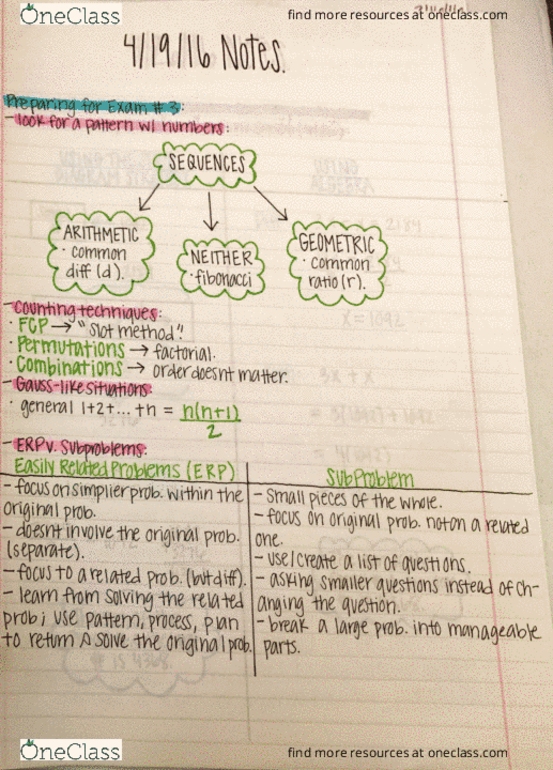 OneClass
find more resources at oneclass.com
4/19/16 Notes.
Preparing for Exam #3:
- look for a pattern w/ numbers:
SEQUENCES
ARITHMETIC
· common
diff (d).
NEITHER
· fibonacci
GEOMETRIC
· common
ratio (r).
- Counting techniques:
· FCP → "Slot method"!
· Permutations → factorial.
· Combinations → order doesnt matter.
- Gauss-like situations:
· general 1+2+...+n = n(n+1)
2
- ERP v. Subproblems:
Easily Related Problems (ERP)
- focus on simplier prob. within the
original prob.
- doesnt involve the original prob.
(separate).
- focus to a related prob. (but diff).
- learn from solving the related
prob; use pattern, process, plan
to return & solve the original prob.
SubProblem
- Small pieces of the whole.
- focus on original prob. not on a related
one.
- use/create a list of questions.
- asking smaller questions instead of ch-
anging the question.
- break a large prob. into manageable
parts.
OneClass
find more resources at oneclass.com